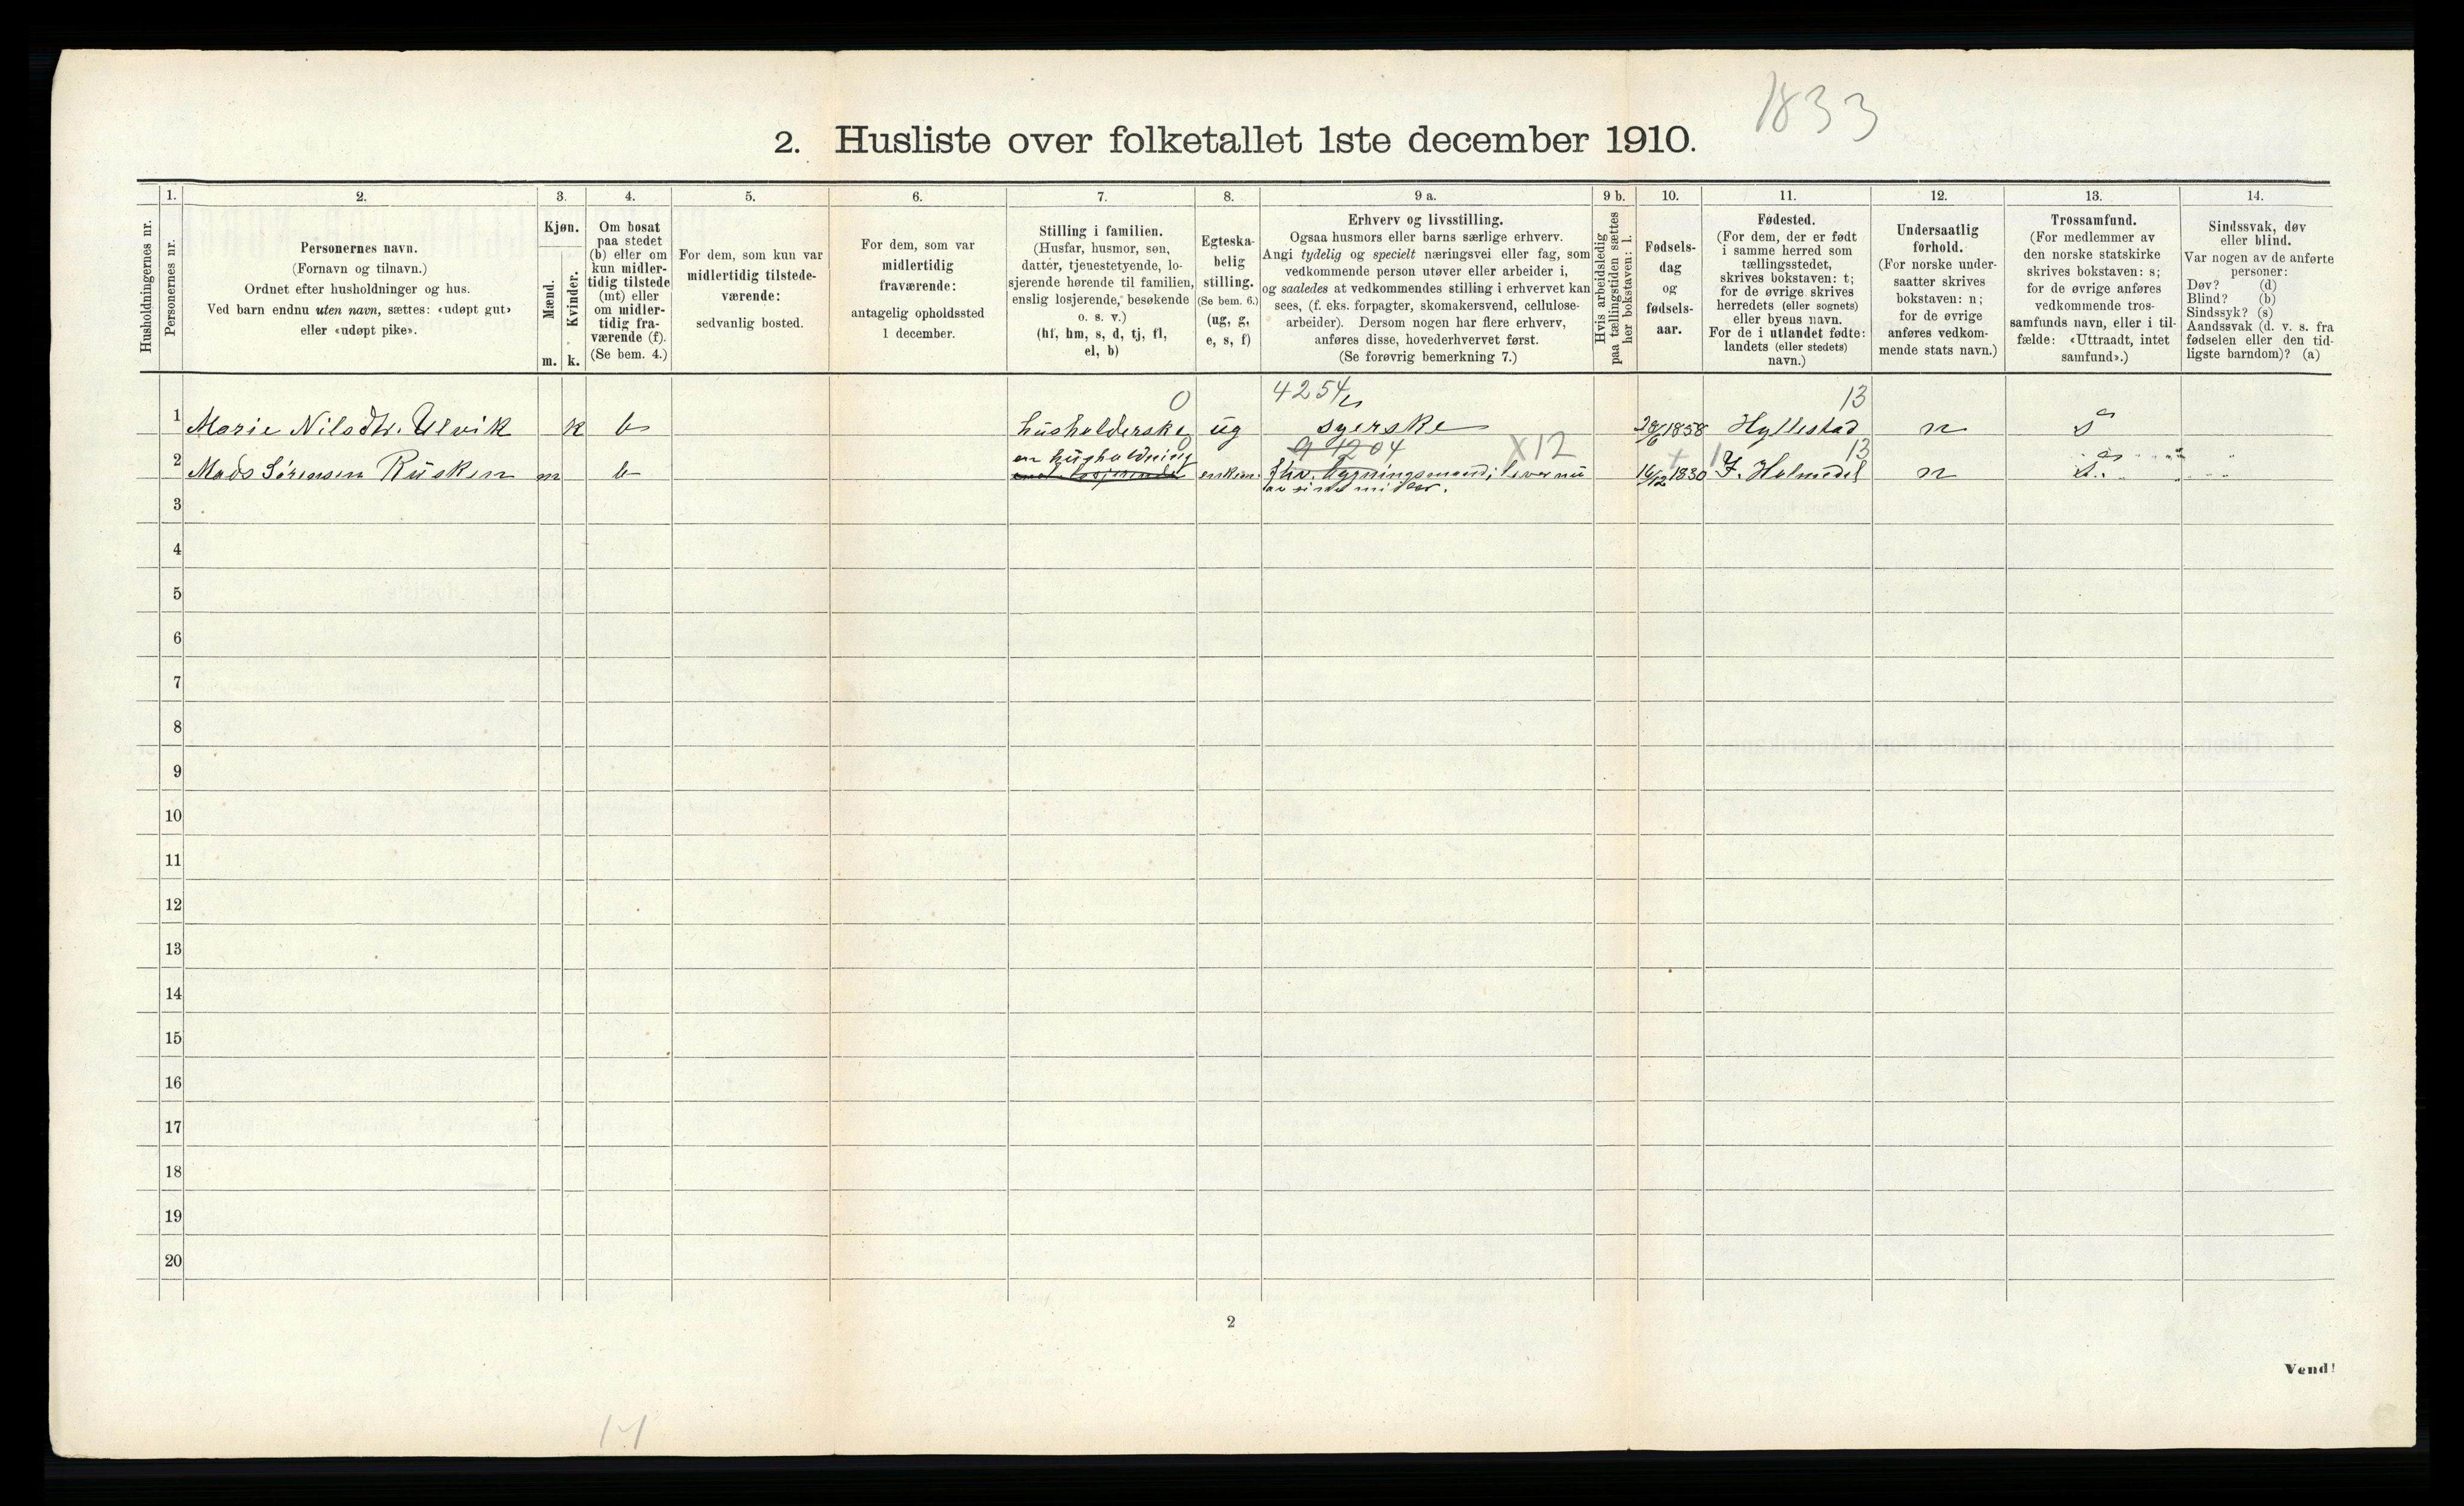 1833
2. Husliste over folketallet 1ste december 1910.
Husholdningernes nr.
1.
Personernes nr.
2.
Personernes navn.
(Fornavn og tilnavn.)
Ordnet efter husholdninger og hus.
Ved barn endnu uten navn, sættes: «udøpt gut»
eller «udøpt pike».
3.
Kjøn.
Mænd.
m.
Kvinder.
k.
4.
Om bosat
paa stedet
(b) eller om
kun midler-
tidig tilstede
(mt) eller
om midler-
tidig fra-
værende (f).
(Se bem. 4.)
5.
For dem, som kun var
midlertidig tilstede-
værende:
sedvanlig bosted.
6.
For dem, som var
midlertidig
fraværende:
antagelig opholdssted
1 december.
7.
Stilling i familien.
(Husfar, husmor, søn,
datter, tjenestetyende, lo-
sjerende hørende til familien,
enslig losjerende, besøkende
o. s. v.)
(hf, hm, s, d, tj, fl,
el, b)
8.
Egteska-
belig
stilling.
(Se bem. 6.)
(ug, g,
e, s, f)
9 a.
Erhverv og livsstilling.
Ogsaa husmors eller barns særlige erhverv.
Angi tydelig og specielt næringsvei eller fag, som
vedkommende person utøver eller arbeider i,
og saaledes at vedkommendes stilling i erhvervet kan
sees, (f. eks. forpagter, skomakersvend, cellulose-
arbeider). Dersom nogen har flere erhverv,
anføres disse, hovederhvervet først.
(Se forøvrig bemerkning 7.)
9 b.
Hvis arbeidsledig
paa tællingstiden sættes
her bokstaven: l.
10.
Fødsels-
dag
og
fødsels-
aar.
11.
Fødested.
(For dem, der er født
i samme herred som
tællingsstedet,
skrives bokstaven: t;
for de øvrige skrives
herredets (eller sognets)
eller byens navn.
For de i utlandet fødte:
landets (eller stedets)
navn.)
12.
Undersaatlig
forhold.
(For norske under-
saatter skrives
bokstaven: n;
for de øvrige
anføres vedkom-
mende stats navn.)
13.
Trossamfund.
(For medlemmer av
den norske statskirke
skrives bokstaven: s;
for de øvrige anføres
vedkommende tros-
samfunds navn, eller i til-
fælde: «Uttraadt, intet
samfund».)
14.
Sindssvak, døv
eller blind.
Var nogen av de anførte
personer:
Døv? (d)
Blind? (b)
Sindssyk? (s)
Aandssvak (d. v. s. fra
fødselen eller den tid-
ligste barndom)? (a)
0 4254 13
1 Marie Nilsdtr. Ulvik k b husholderske ug syerske 1858 Hyllestad n s
0 91204 X12 13
2 Mads Sørensen Rusken m b en husholdning enkem. fhv. bygningsmand; lever nu 14/12 1830 Y. Holmedal n s.
av sine midler.
3
4
5
6
7
8
9
10
11
12
13
14
15
16
17
18
19
20
2
Vend!
14